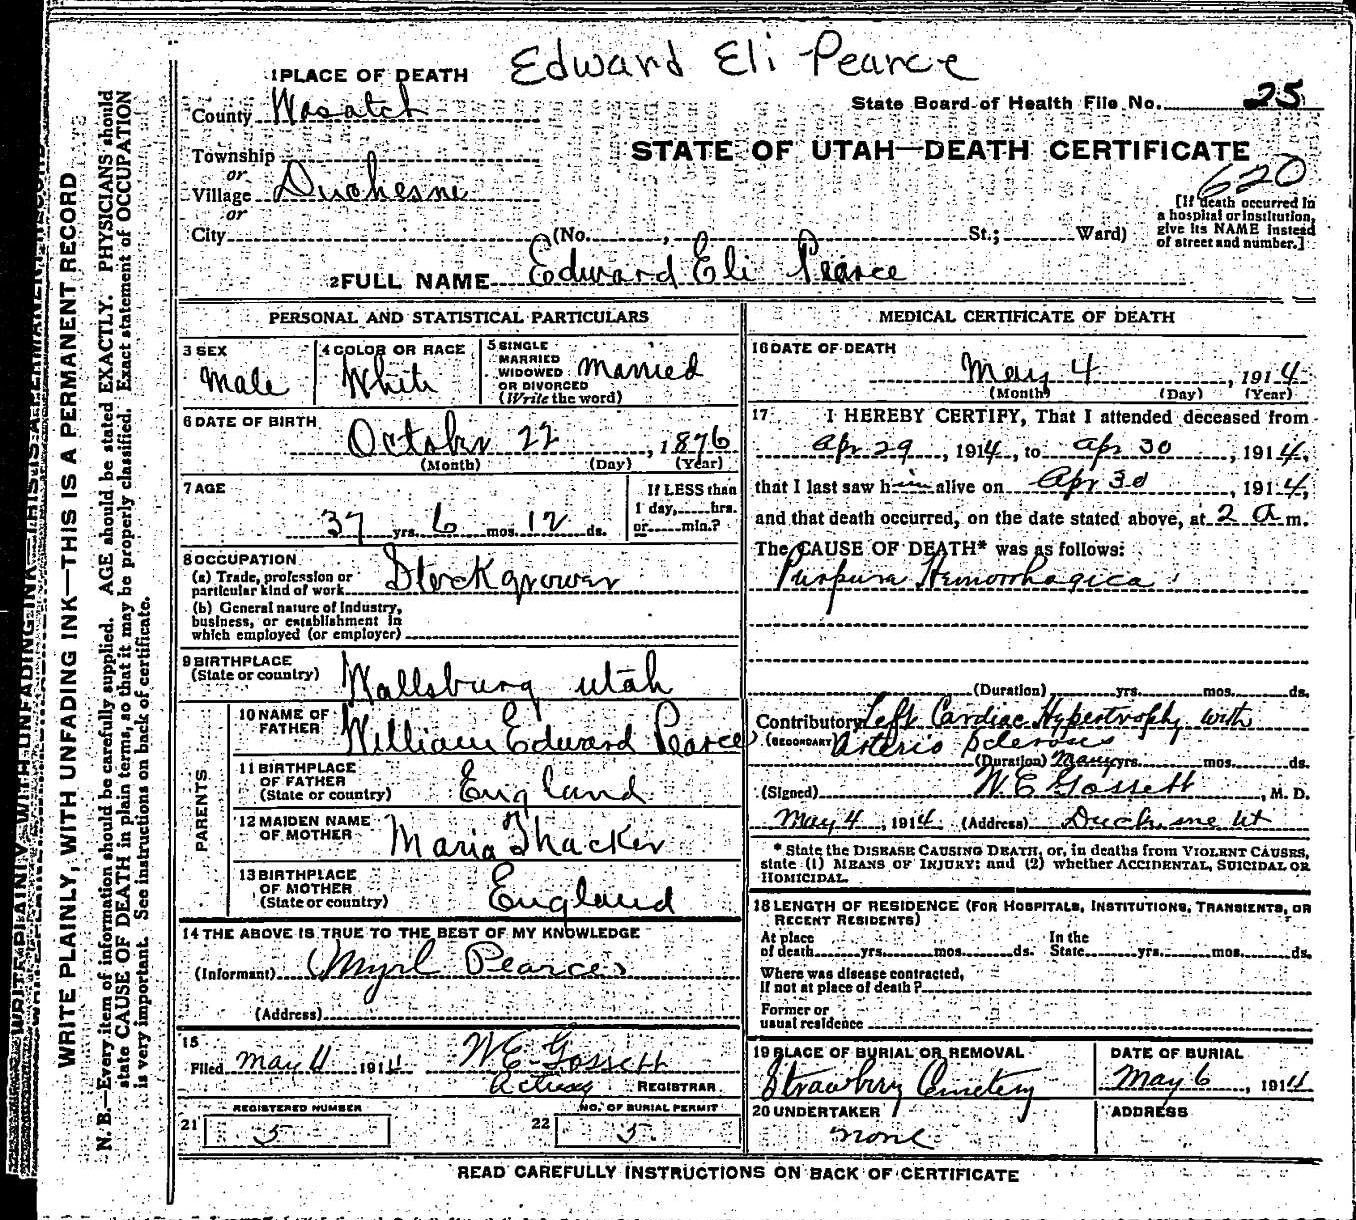 Edward Eli Pearce
1 PLACE OF DEATH
County Wasatch
State Board of Health File No. 25
Township
or
Village Duchesne
or
City (No. , St.; Ward)
STATE OF UTAH—DEATH CERTIFICATE
620
[If death occurred in
a hospital or institution,
give its NAME instead
of street and number.]
2 FULL NAME Edward Eli Pearce
PERSONAL AND STATISTICAL PARTICULARS
3 SEX
Male
4 COLOR OR RACE
White
5 SINGLE
MARRIED
WIDOWED
OR DIVORCED
(Write the word)
Married
6 DATE OF BIRTH
October 22, 1876
(Month) (Day) (Year)
7 AGE
37 yrs. 6 mos. 12 ds.
If LESS than
1 day, hrs.
or min.?
8 OCCUPATION
(a) Trade, profession or
particular kind of work Stockgrower
(b) General nature of industry,
business, or establishment in
which employed (or employer)
9 BIRTHPLACE
(State or country) Wallsburg Utah
PARENTS
10 NAME OF
FATHER William Edward Pearce
11 BIRTHPLACE
OF FATHER
(State or country) England
12 MAIDEN NAME
OF MOTHER Maria Thacker
13 BIRTHPLACE
OF MOTHER
(State or country) England
14 THE ABOVE IS TRUE TO THE BEST OF MY KNOWLEDGE
(Informant) Myrl Pearce
(Address)
15
Filed May 4 1914 W E Gossett
Acting REGISTRAR
REGISTERED NUMBER
21 5
NO. OF BURIAL PERMIT
22 5
MEDICAL CERTIFICATE OF DEATH
16 DATE OF DEATH
May 4, 1914
(Month) (Day) (Year)
17 I HEREBY CERTIFY, That I attended deceased from
Apr 29, 1914, to Apr 30, 1914,
that I last saw him alive on Apr 30, 1914,
and that death occurred, on the date stated above, at 2 a m.
The CAUSE OF DEATH* was as follows:
Purpura Hemorrhagica
(Duration) yrs. mos. ds.
Contributory Left Cardiac Hypertrophy with
(SECONDARY) Arterio Sclerosis
(Duration) Many yrs. mos. ds.
(Signed) W. E Gossett, M. D.
May 4, 1914 (Address) Duchesne Ut
* State the DISEASE CAUSING DEATH, or, in deaths from VIOLENT CAUSES,
state (1) MEANS OF INJURY; and (2) whether ACCIDENTAL, SUICIDAL OR
HOMICIDAL.
18 LENGTH OF RESIDENCE (FOR HOSPITALS, INSTITUTIONS, TRANSIENTS, OR
RECENT RESIDENTS)
At place
of death yrs. mos. ds.
In the
State yrs. mos. ds.
Where was disease contracted,
If not at place of death?
Former or
usual residence
19 PLACE OF BURIAL OR REMOVAL
Strawberry Cemetery
DATE OF BURIAL
May 6, 1914
20 UNDERTAKER
none
ADDRESS
READ CAREFULLY INSTRUCTIONS ON BACK OF CERTIFICATE
WRITE PLAINLY, WITH UNFADING INK—THIS IS A PERMANENT RECORD
N. B.—Every item of information should be carefully supplied. AGE should be stated EXACTLY. PHYSICIANS should
state CAUSE OF DEATH in plain terms, so that it may be properly classified. Exact statement of OCCUPATION
is very important. See instructions on back of certificate.